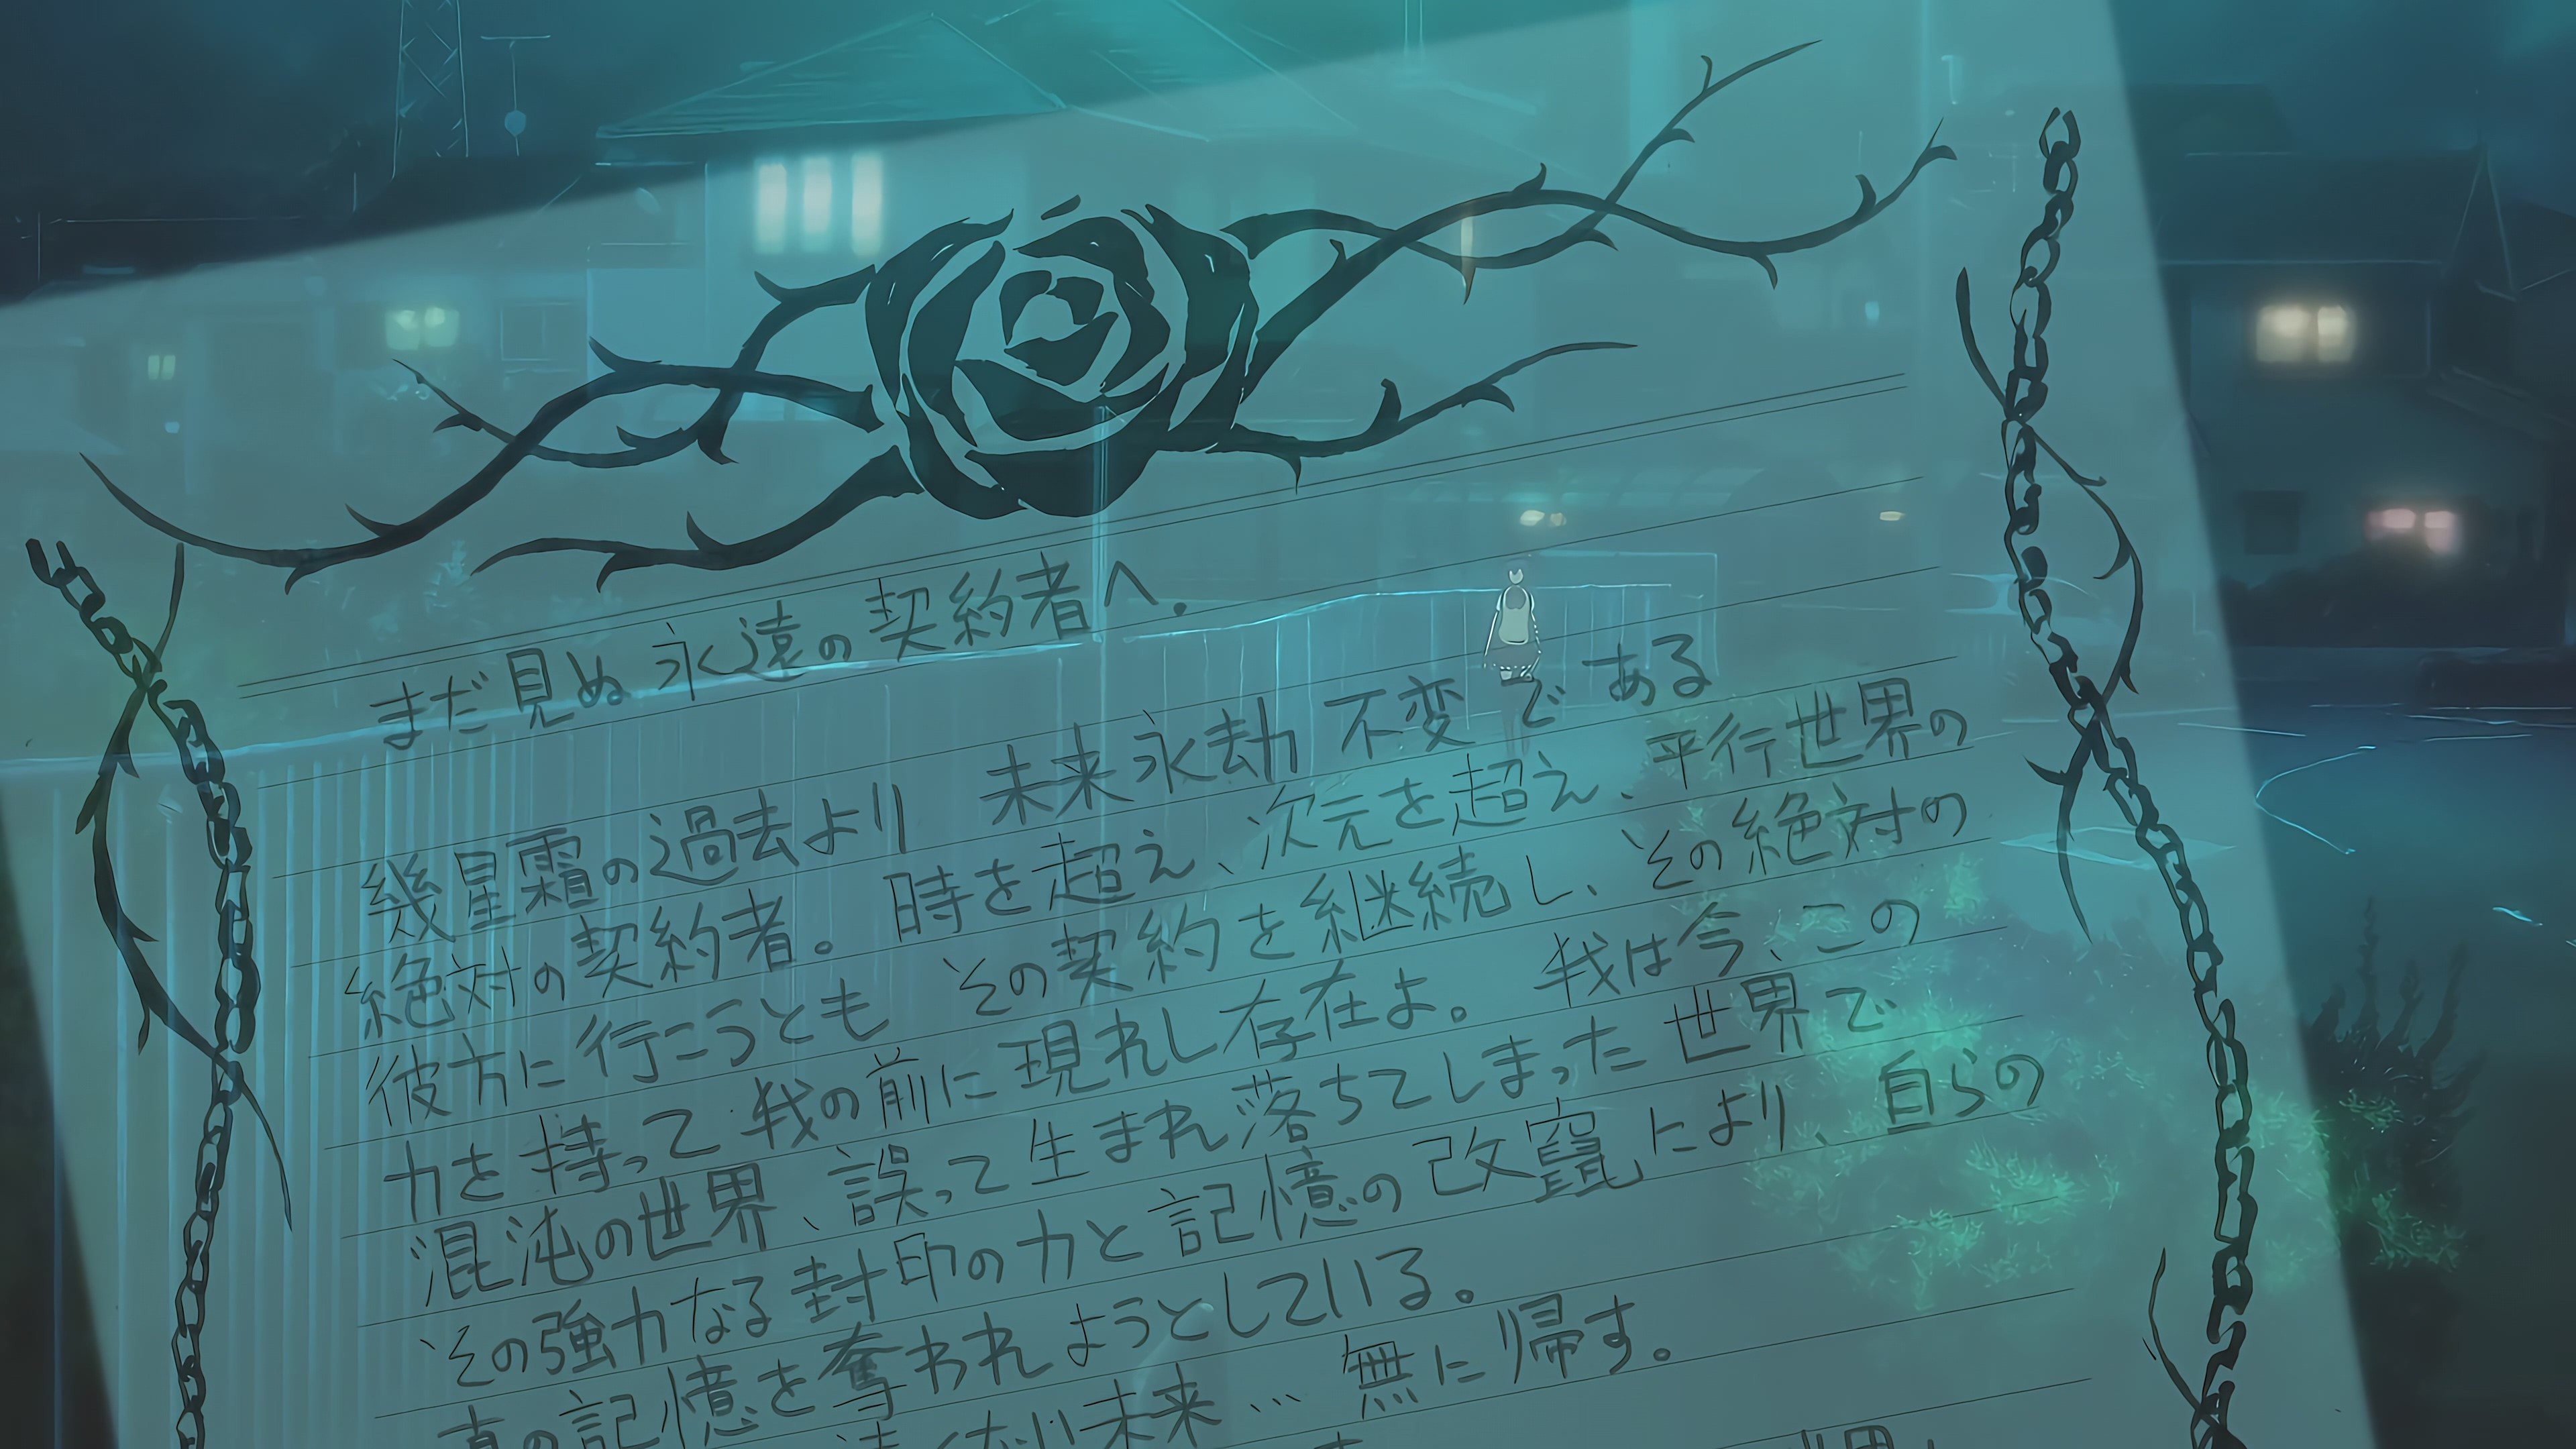 まだ見ぬ永遠の契約者へ.
幾星霜の過去より 未来永劫 不変で ある
絶対の契約者。時を超え、次元を超え、平行世界の
彼方に行こうとも その契約を継続し、その絶対の
力を持って我の前に現れし存在よ。我は今、この
混沌の世界、誤って生まれ落ちてしまった世界で
その強力なる封印の力と記憶の改竄により、自らの
真の記憶を奪われようとしている。
遠くない未来… 無に帰す。